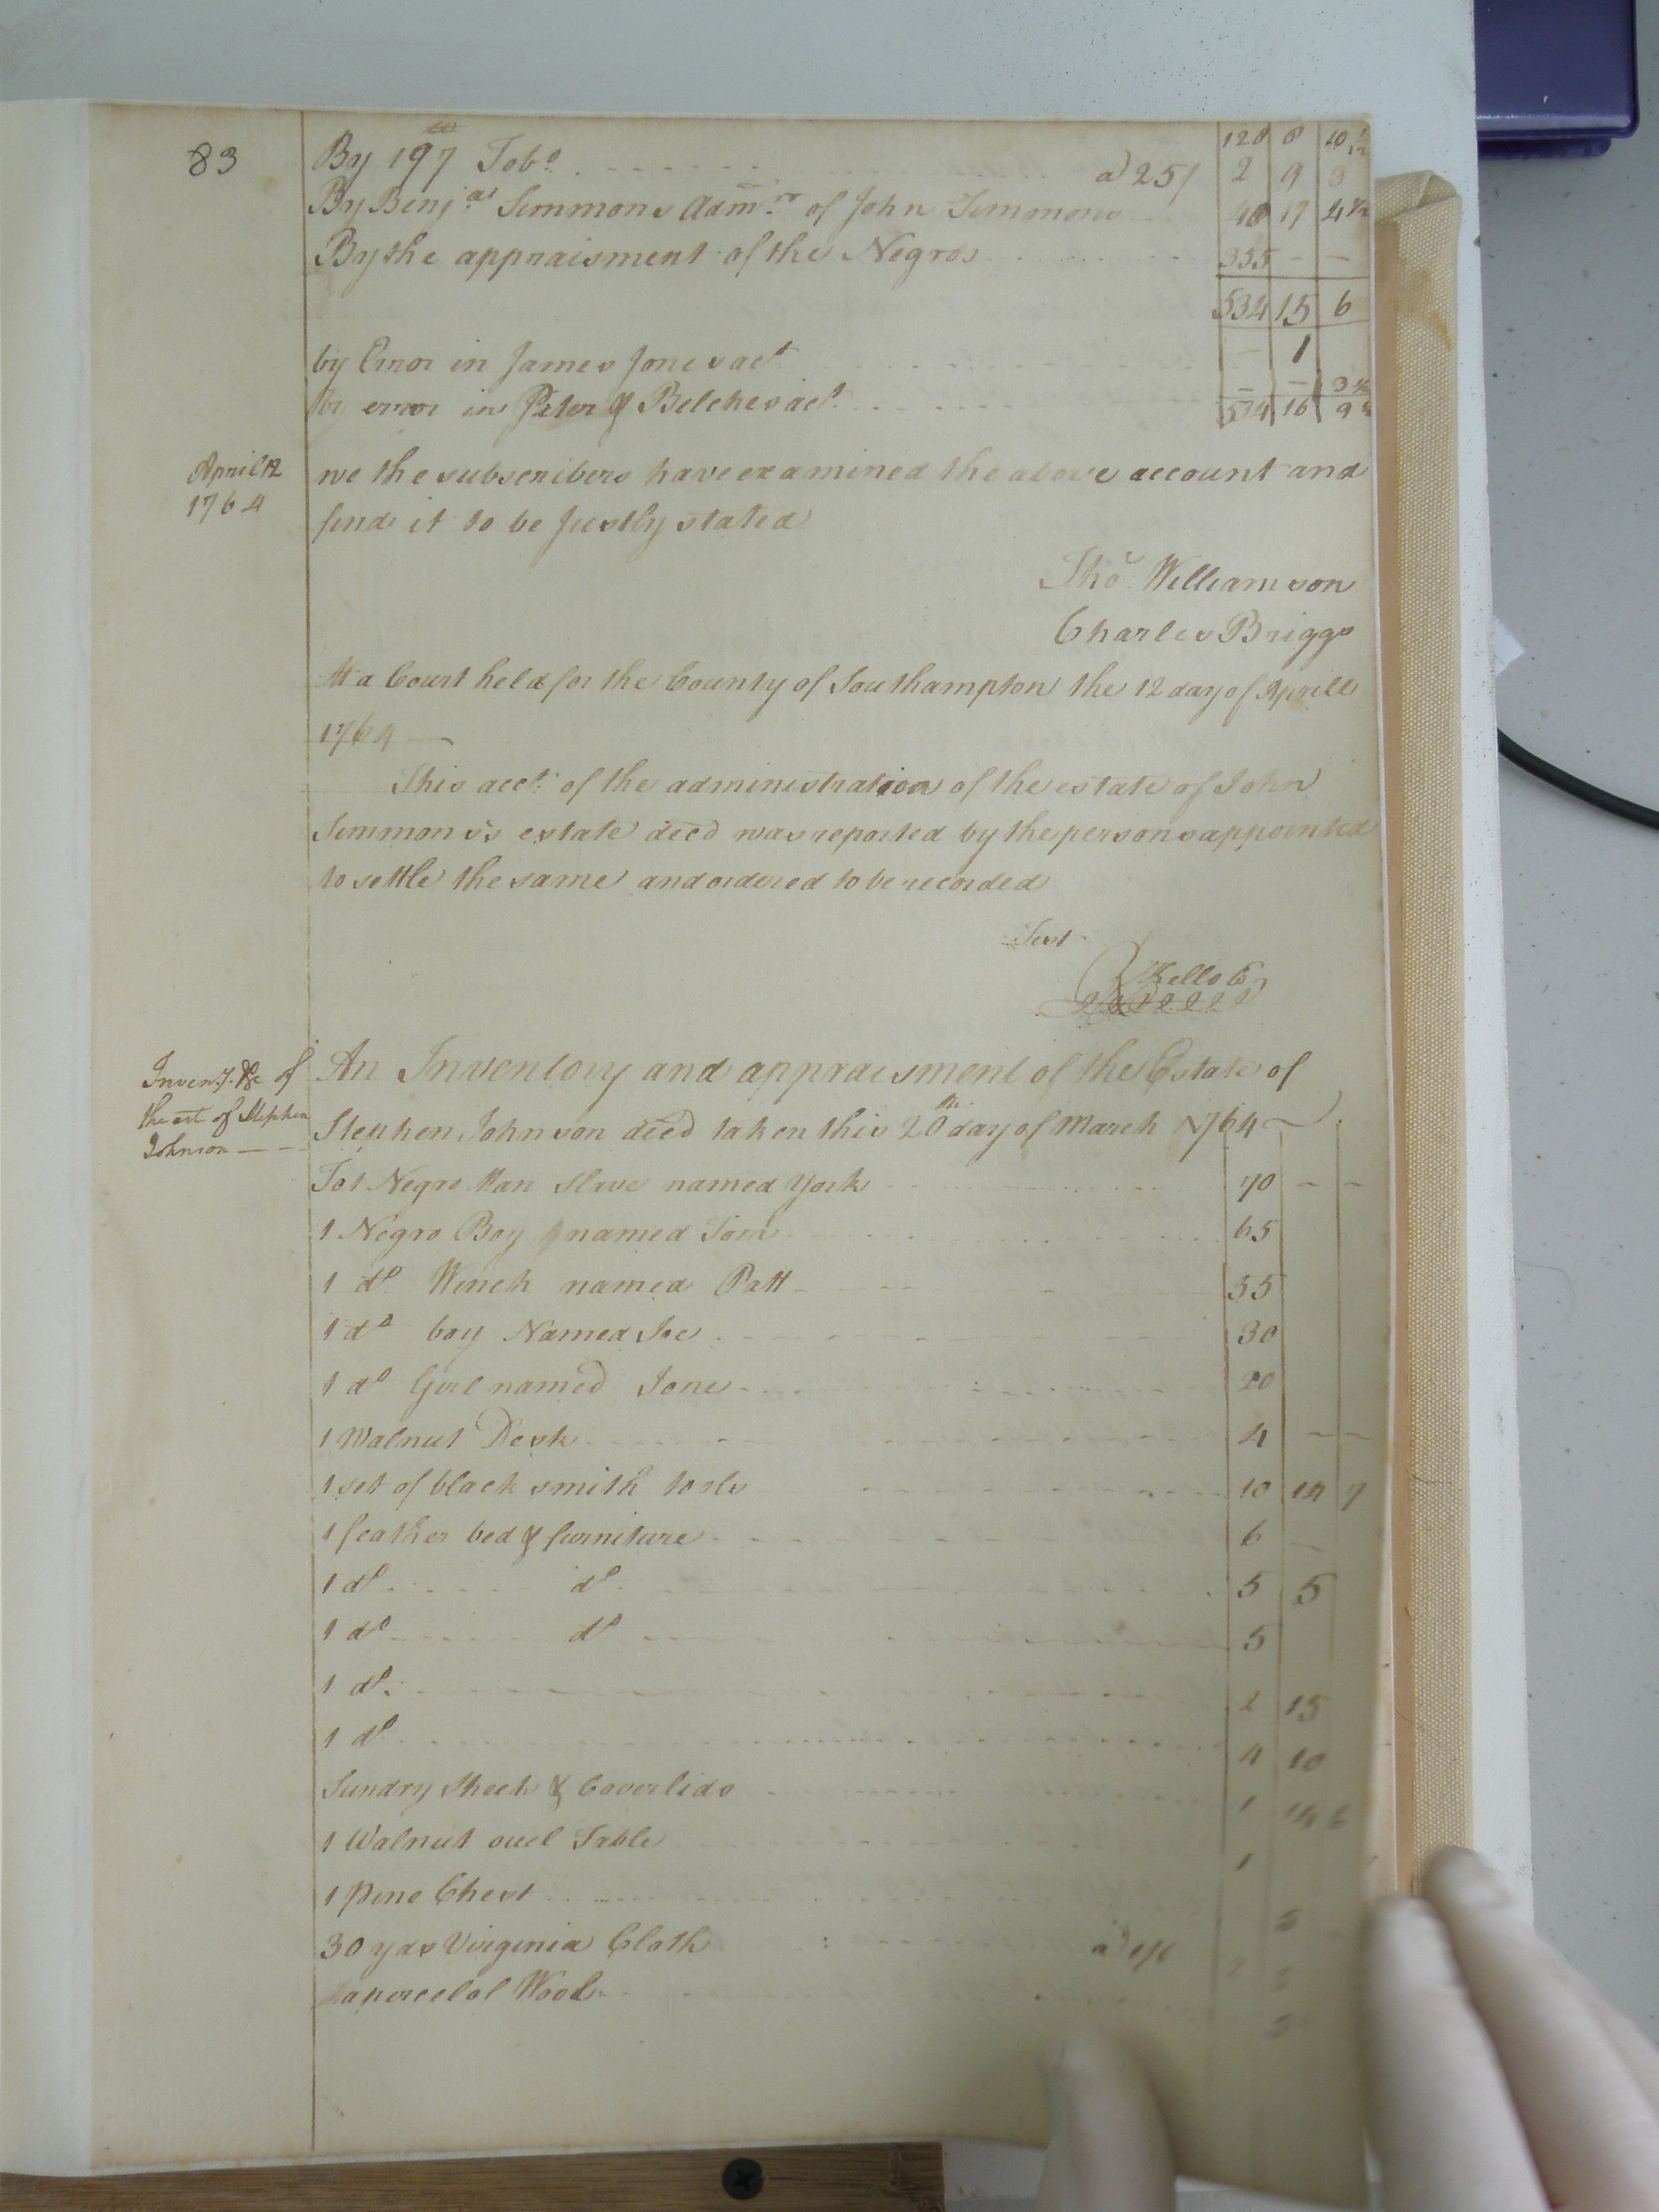 83
128 8 10 1/2
By 197 Tobo. a) 25/ 2 9 3
By Benja. Simmons Admr. of John Simmons 48 17 4 1/2
By the appraisment of the Negros 355 - -
534 15 6
by Error in James Jones act. - 1
By error in Peter & Belches act. - - 3 1/2
534 16 9 1/2
April 12
1764
we the subscribers have examined the above account and
find it to be Justly stated
Tho. Williamson
Charles Briggs
At a Court held for the County of Southampton the 12 day of Aprill
1764
This acct. of the administration of the estate of John
Simmons's estate decd was reported by the persons appointed
to settle the same and ordered to be recorded
Test
R Kello C
Inventy. &c of
the est of Stephen
Johnson
An Inventory and appraisment of the Estate of
Stephen Johnson decd taken this 20th day of March 1764
To 1 Negro Man Slave named York 70 - -
1 Negro Boy named Tom 65
1 do. Winch named Patt 35
1 do boy Named Joe 30
1 do Girl named Jone 20
1 Walnut Desk 4 - -
1 set of black smith tools 10 14 7
1 feather bed & furniture 6 -
1 do. do. 5 5
1 do do 5
1 do. 2 15
1 do. 4 10
Sundry Sheets & Coverlids 1
1 Walnut ovel Table 1
1 pine Chest 5
30 yds Virginia Cloth a) 1/6 2 5
a percel of Wool 5